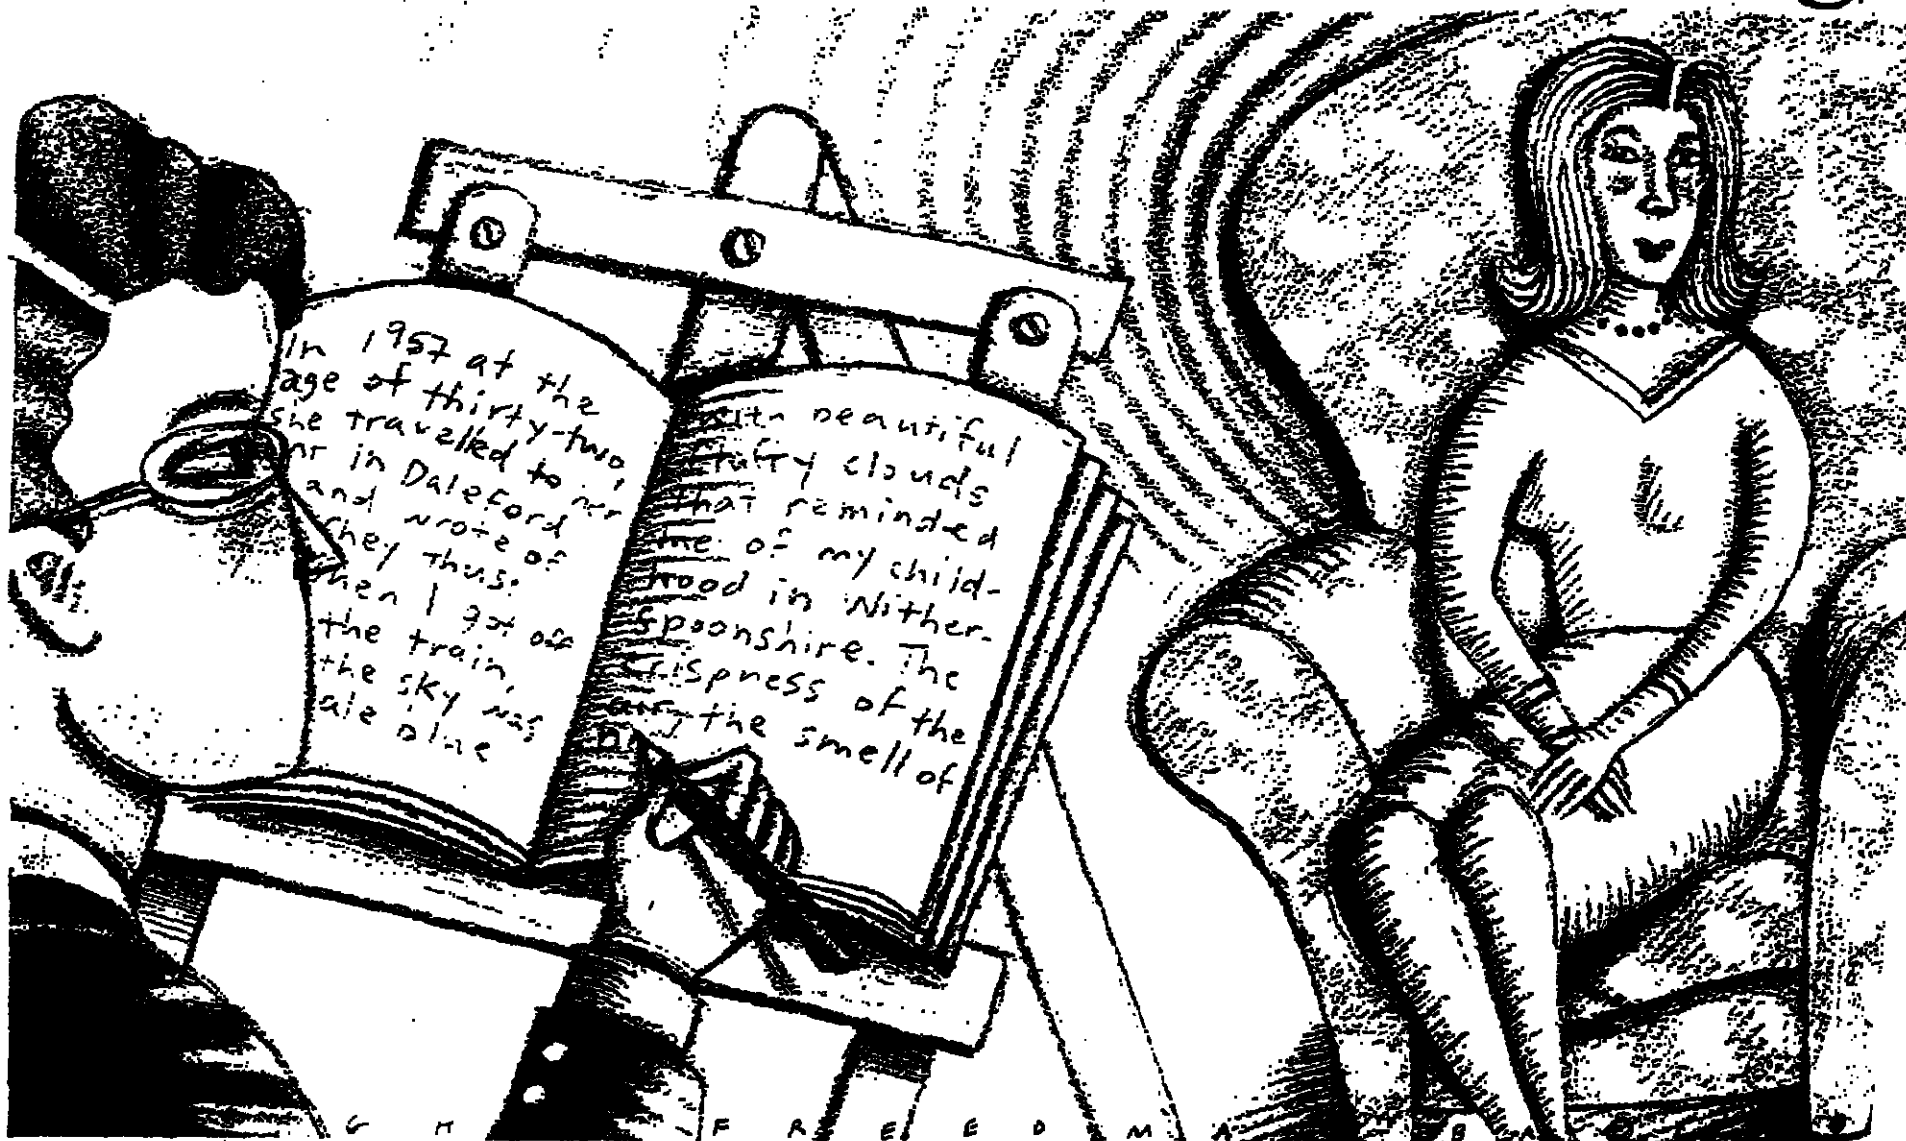 In 1957 at the
age of thirty-two,
she travelled to
in Daleford
and wrote of
they thus:
when I got off
the train,
the sky was
ale blue
with beautiful
fluffy clouds
that reminded
me of my child-
hood in Nither-
spoonshire. The
crispness of the
the smell of
F R E E D M A